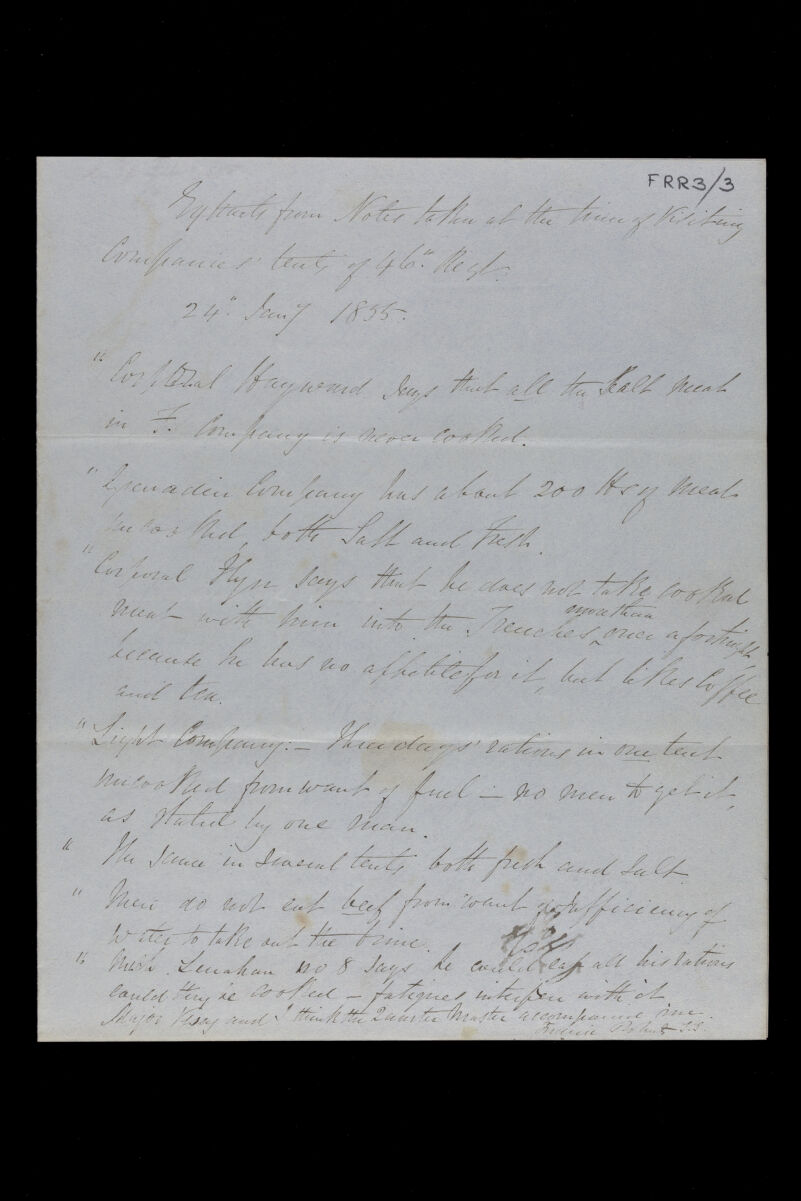 FRR3/3
Extracts from Notes taken at the time of Visiting
Companies' tents of 46th Regt.
24th Jany 1855.
" Corporal Hayward says that all the Salt meat
in F. Company is never cooked.
" Grenadier Company has about 200 lbs of meat
uncooked, both Salt and Fresh.
" Corporal Flyn says that he does not take cooked
meat with him into the Trenches more than once a fortnight
because he has no appetite for it, but likes Coffee
and tea.
" Light Company:– Three days' rations in one tent
uncooked from want of fuel – no men to get it,
as stated by one man.
" The same in several tents both fresh and salt
" Men do not eat beef from want of sufficiency of
water to take out the brine.
" Mich. Lenahan no 8 says he could eat all his rations
could they be cooked – fatigues interfere with it
Major and I think the Quarter Master accompanied me.